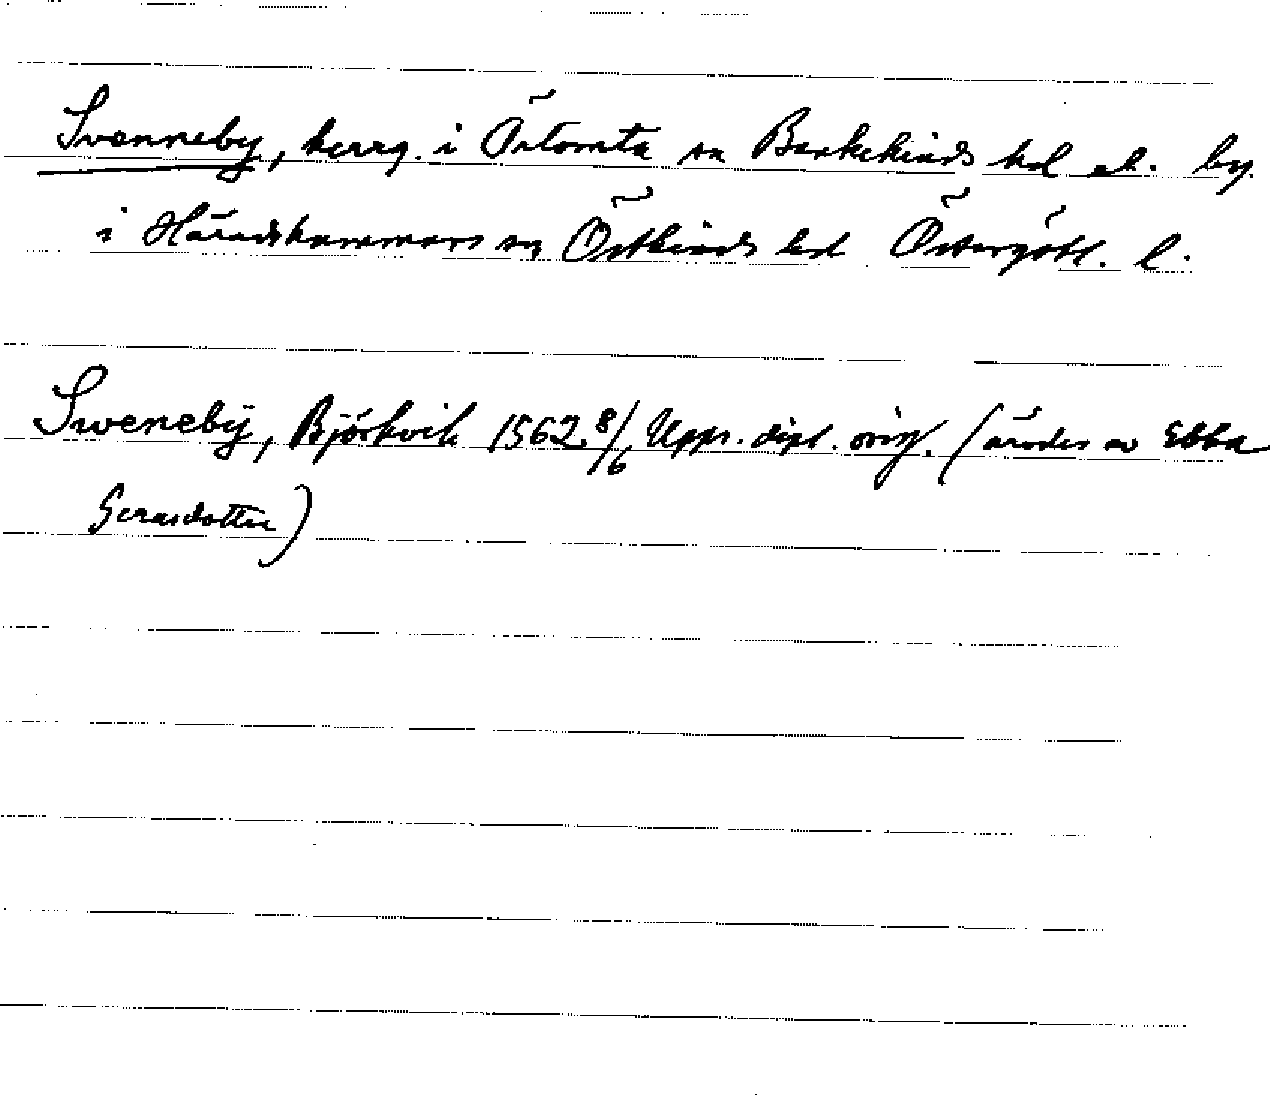 Svenneby, herrg. i Östomta sn Bankekinds hd el. by.
i Häradshammars sn Östkinds hd Östergötl. l.
Sweneby, Björkvik 1562 8/6 Upps. dipl. orig. (ärvdes av Ebba
Gerasdotter)